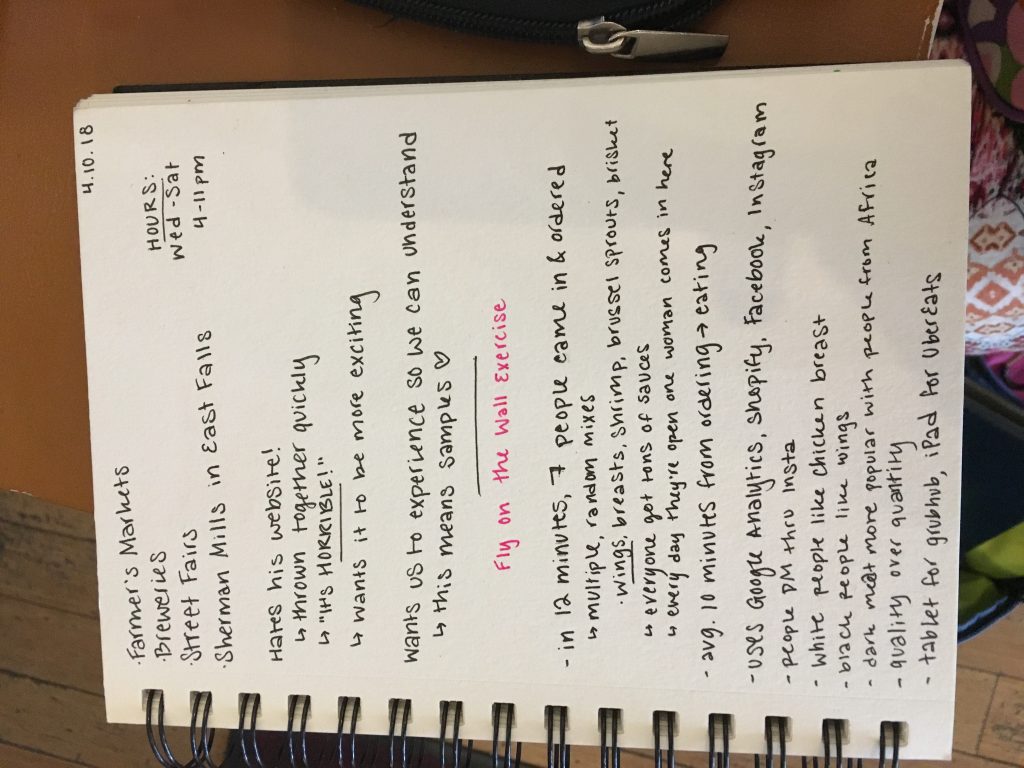 4.10.18
·Farmer's Markets
·Breweries
·Street Fairs
·Sherman Mills in East Falls
HOURS:
Wed - Sat
4-11pm
Hates his website!
↳ thrown together quickly
↳ "It's HORRIBLE!"
↳ wants it to be more exciting
Wants us to experience so we can understand
↳ this means samples ♡
Fly on the Wall Exercise
- in 12 minutes, 7 people came in & ordered
↳ multiple, random mixes
· wings, breasts, shrimp, brussel sprouts, brisket
↳ everyone got tons of sauces
↳ every day they're open one woman comes in here
- avg. 10 minutes from ordering → eating
- uses Google Analytics, Shopify, Facebook, Instagram
- people DM thru Insta
- white people like chicken breast
- black people like wings
- dark meat more popular with people from Africa
- quality over quantity
- tablet for grubhub, iPad for UberEats